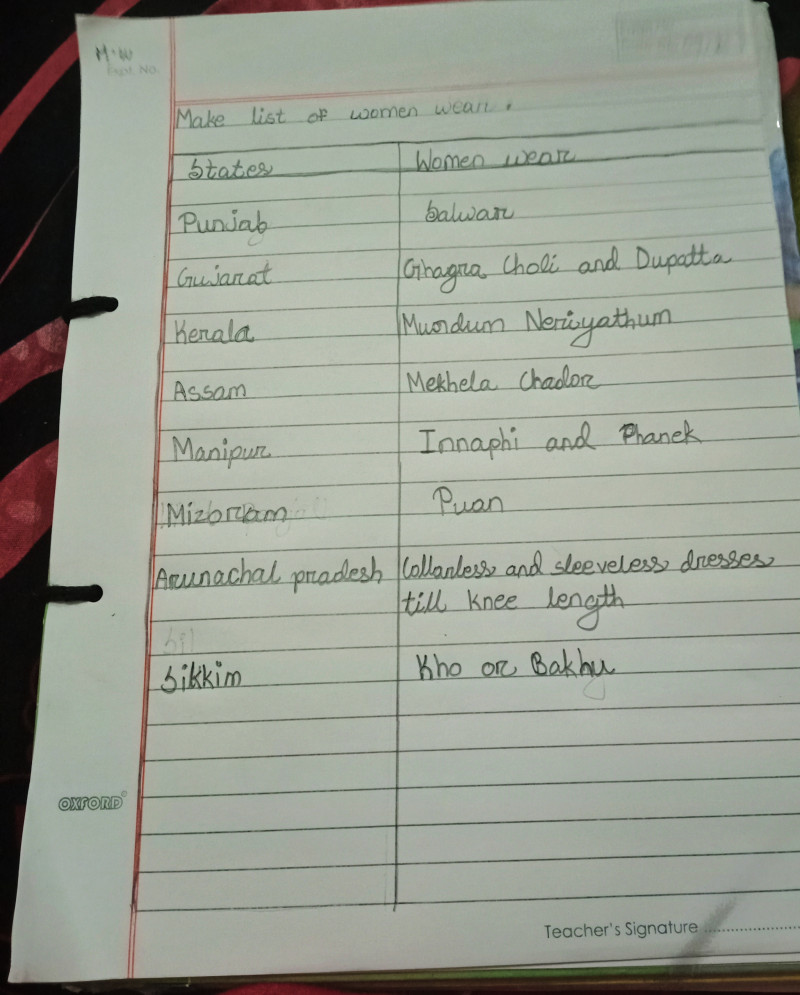 H.W
Expt. No.
Make list of women wear.
States Women wear
Punjab Salwar
Gujarat Ghagra Choli and Dupatta
Kerala Mundum Neriyathum
Assam Mekhela Chador
Manipur Innaphi and Phanek
Mizoram Puan
Arunachal pradesh Collarless and sleeveless dresses
till knee length
Sikkim Kho or Bakhu
OXFORD
Teacher's Signature